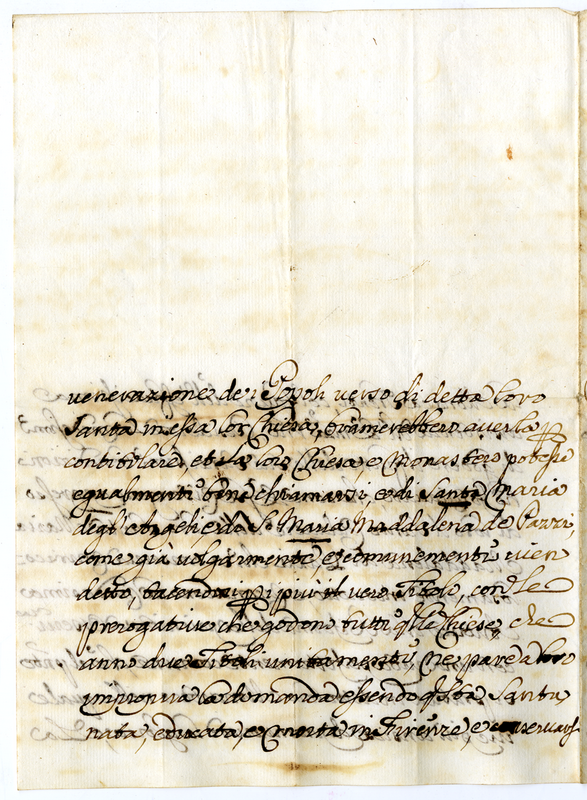 venerazione de i Popoli verso di detta loro
Santa messa lor Chiesa, bramerebbero averla
contitolare, et la loro Chiesa, e Monastero potesse
egualmente bene chiamarsi e di Santa Maria
degl'Angeli e da S. Maria Maddalena de Pazzi,
come già volgarmente, e comunemente vien
detto, tacendosi più il vero Titolo, con le
prerogative che godono tutte q.lle Chiese, che
anno due Titoli unitamente, Ne pare a loro
impropria la domanda essendo q.sta Santa
nata, educata, e morta in Firenze e conservarsi